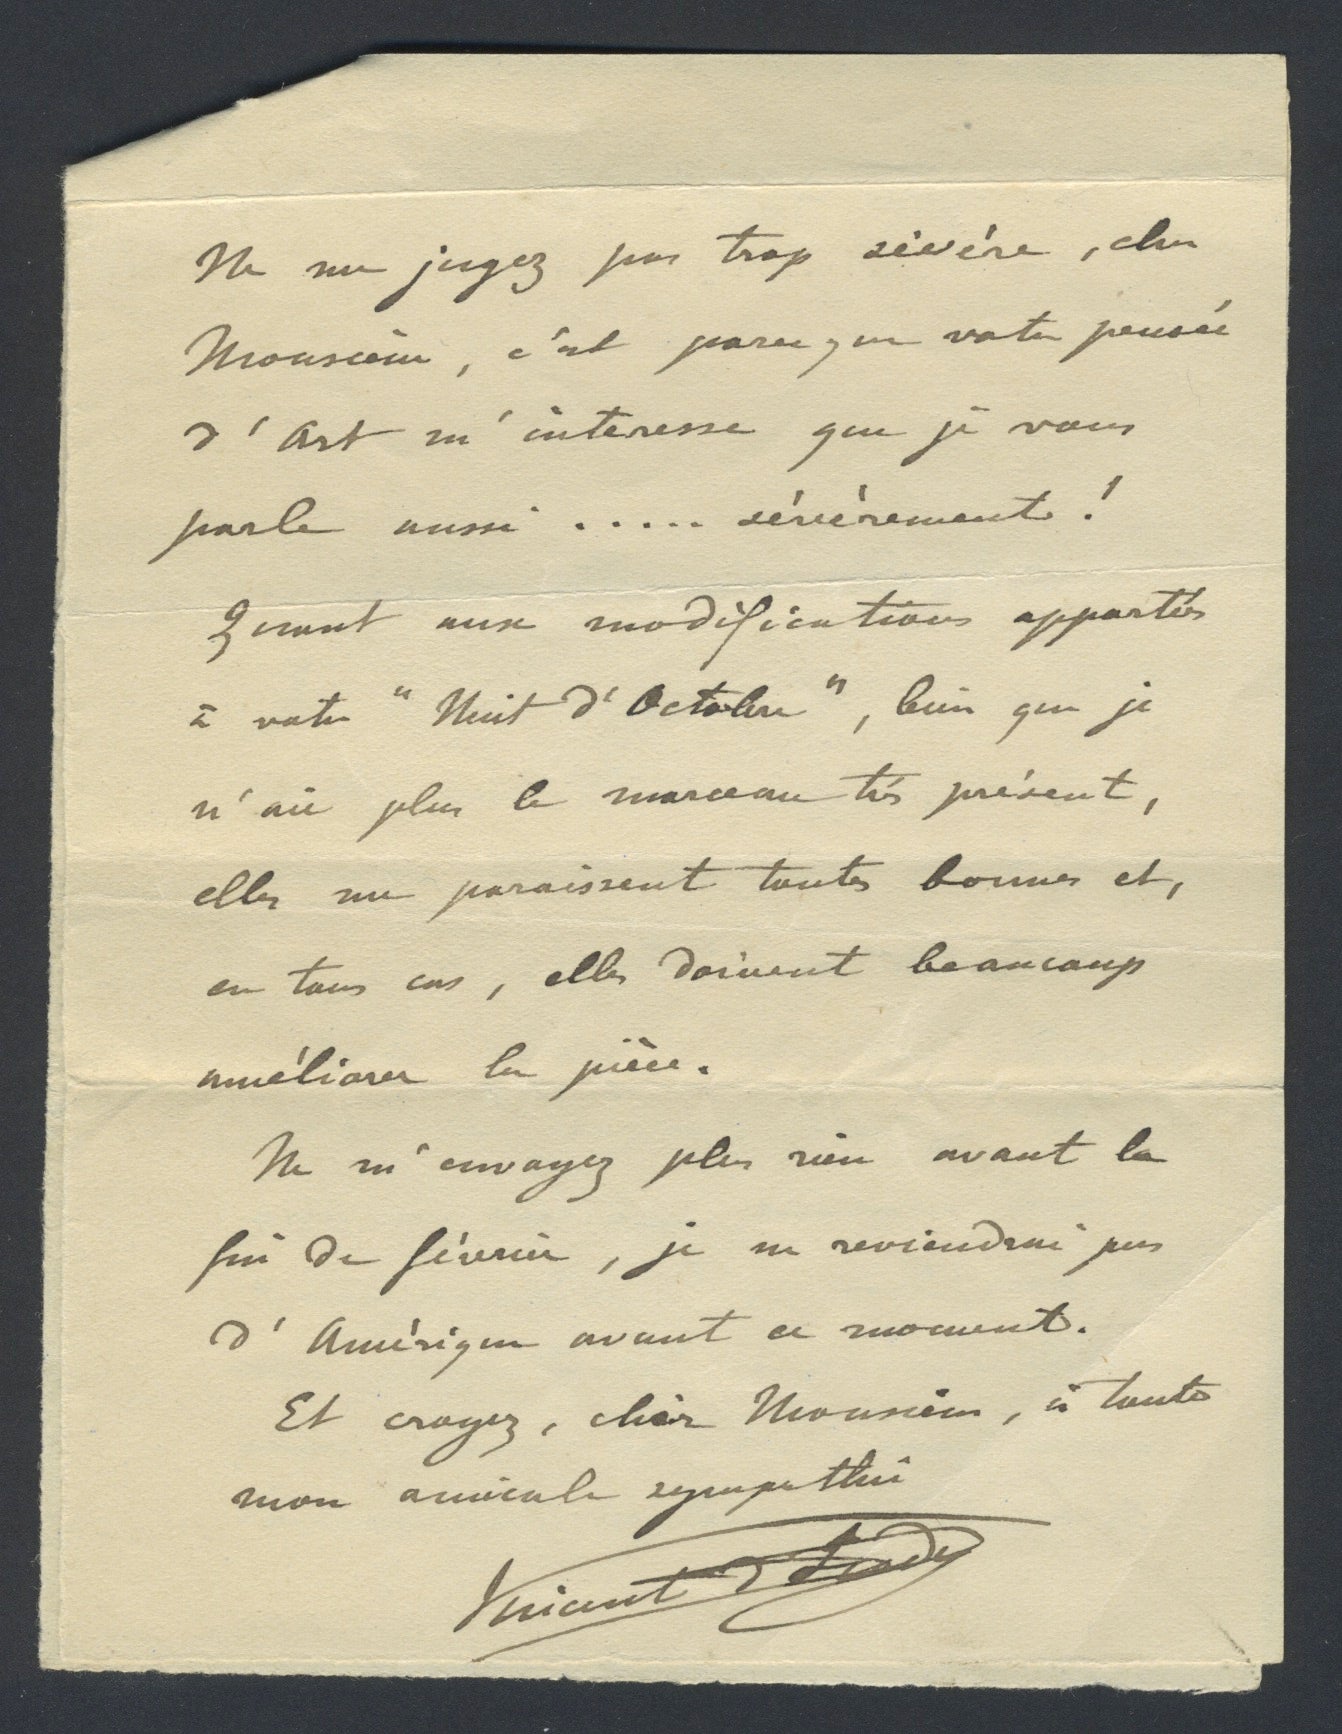 Ne me jugez pas trop sévère, cher
Monsieur, c'est parceque votre pensée
d'Art m'intéresse que je vous
parle aussi ..... sévèrement !
Quant aux modifications apportées
à votre "Nuit d'Octobre", bien que je
n'aie plus le morceau très présent,
elles me paraissent toutes bonnes et,
en tous cas, elles doivent beaucoup
améliorer la pièce.
Ne m'envoyez plus rien avant la
fin de février, je ne reviendrai pas
d'Amérique avant ce moment.
Et croyez, cher Monsieur, à toute
mon amicale sympathie
Vincent d'Indy